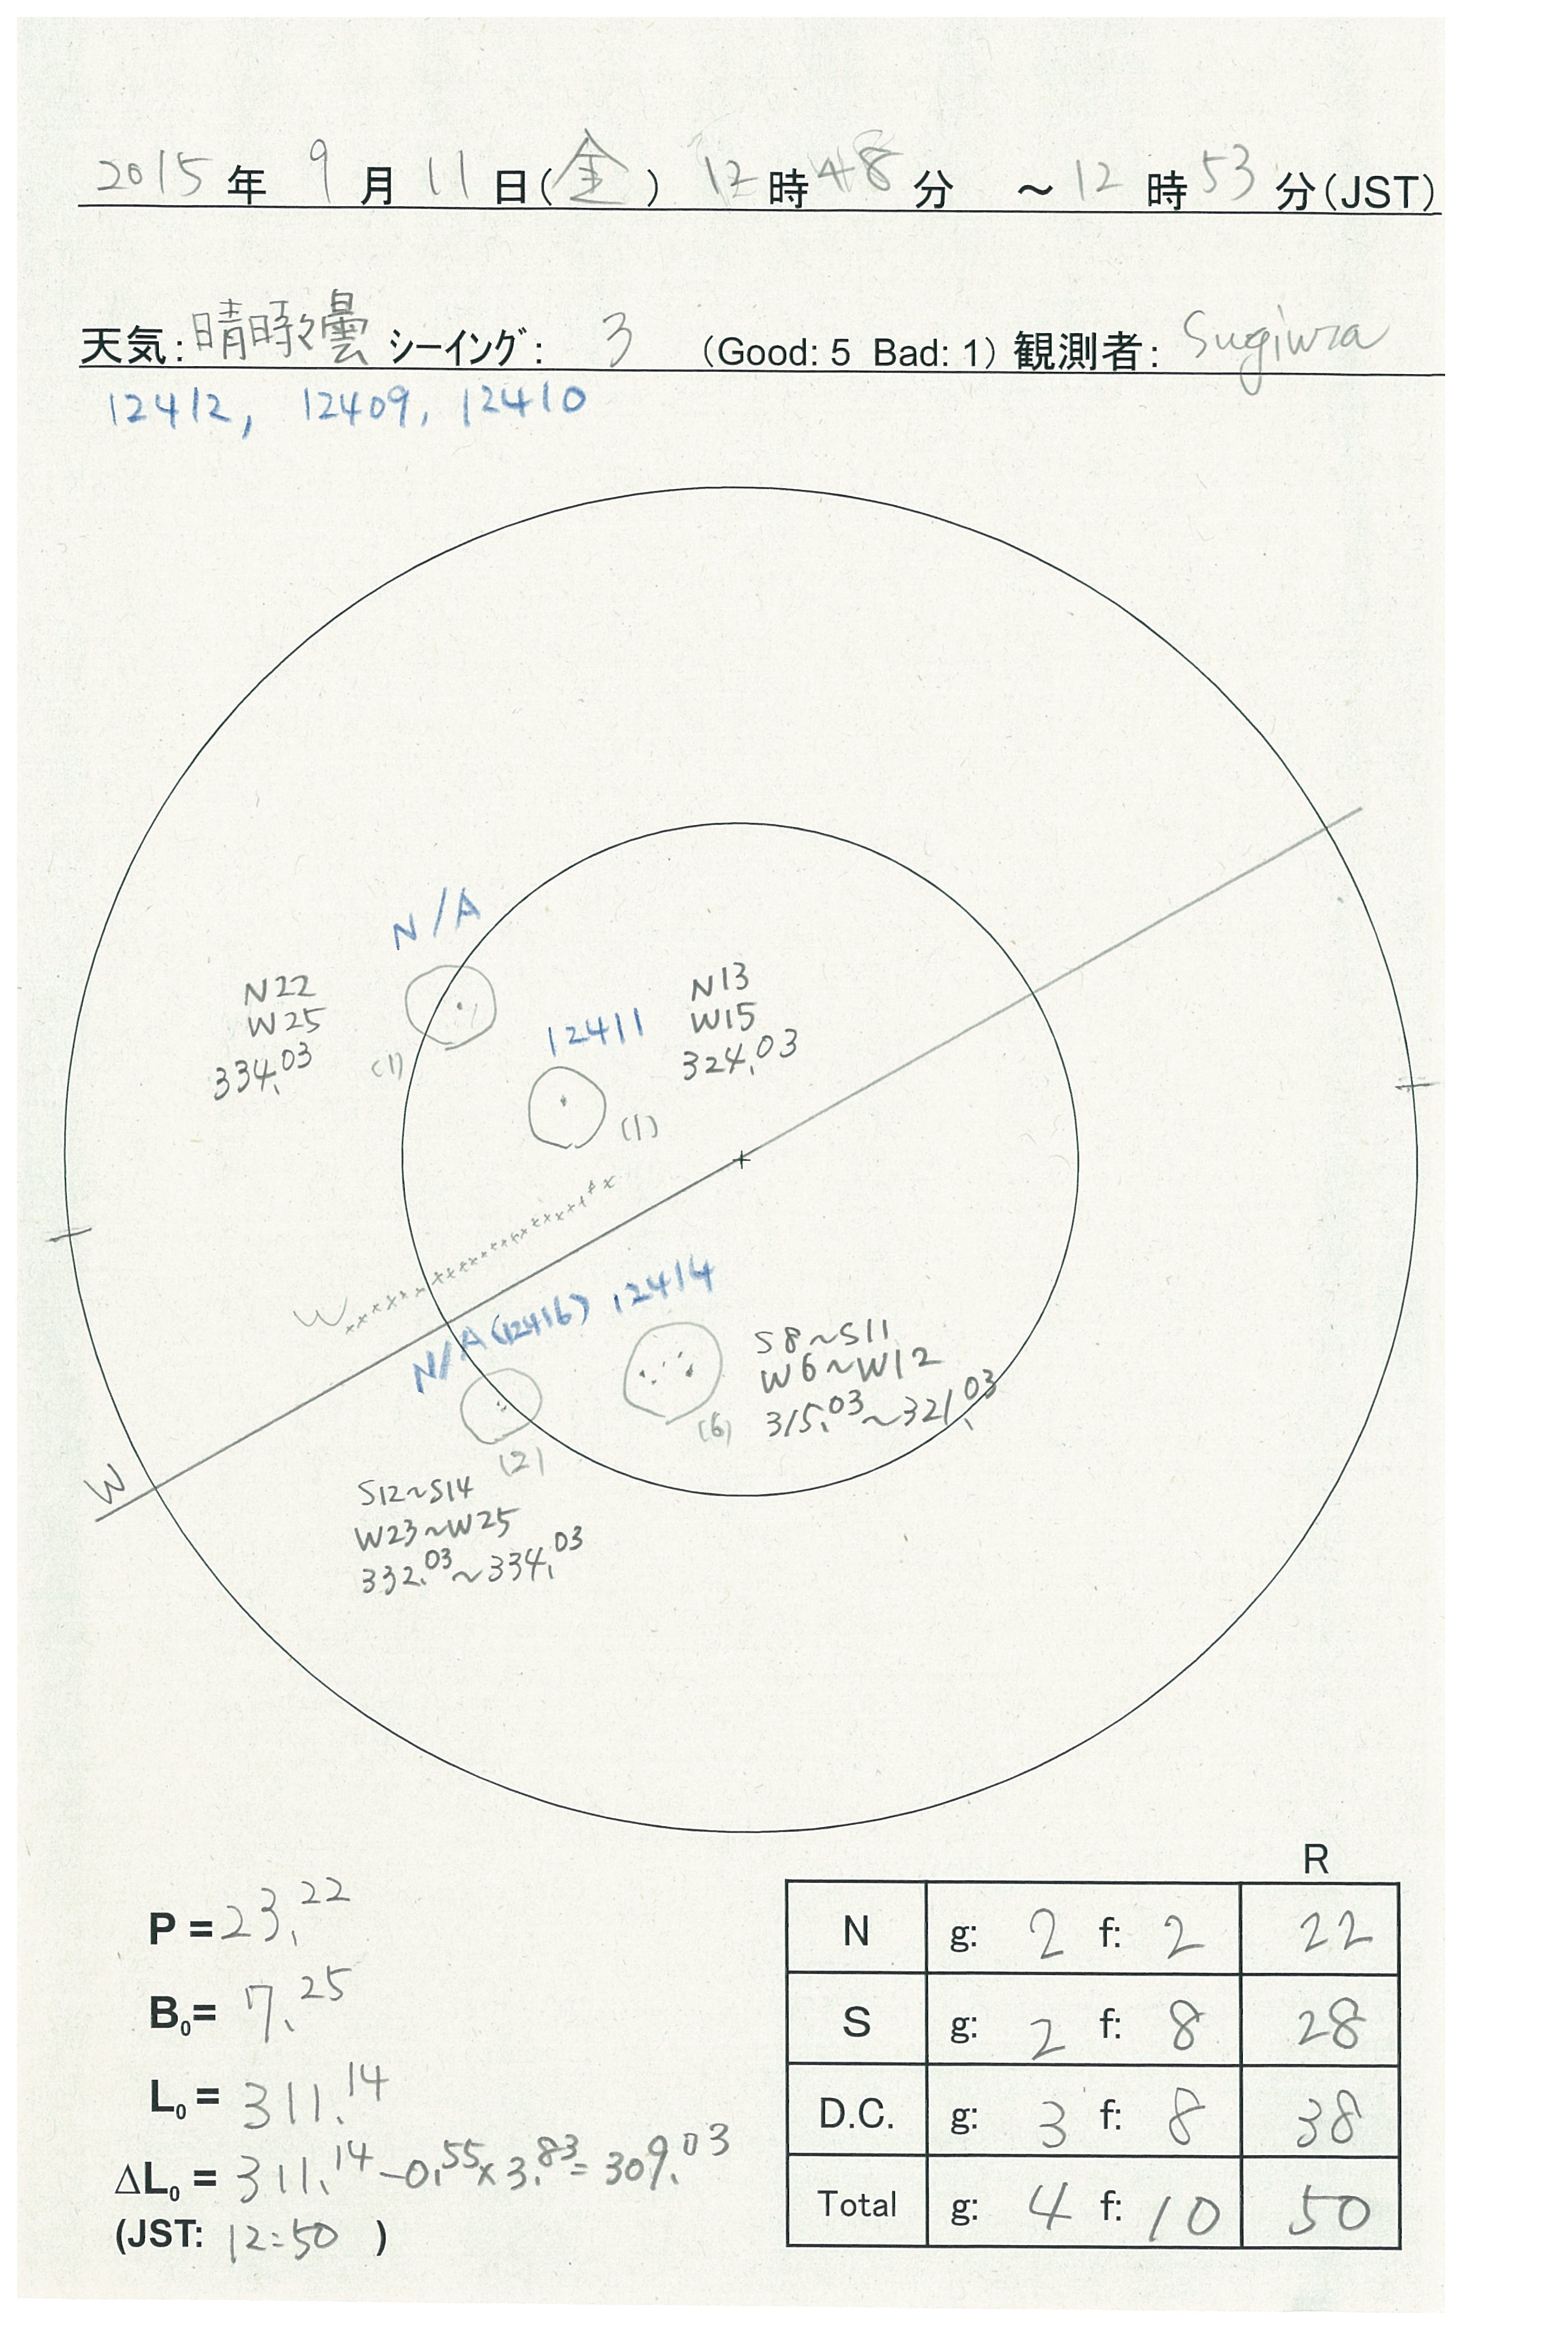 2015年 9月11日(金) 12時48分 ～12時53分(JST)
天気:晴時々曇 シーイング: 3 (Good: 5 Bad: 1) 観測者: Sugiura
12412, 12409, 12410
N/A
N22
W25
334.03
(1)
12411
N13
W15
324.03
(1)
W
N/A(12416) 12414
S8~S11
W6~W12
315.03~321.03
(6)
(2)
S12~S14
W23~W25
332.03~334.03
W
P = 23.22
B0= 7.25
L0 = 311.14
ΔL0 = 311.14 -0.55x3.83= 309.03
(JST: 12:50 )
R
N g: 2 f: 2 22
S g: 2 f: 8 28
D.C. g: 3 f: 8 38
Total g: 4 f: 10 50